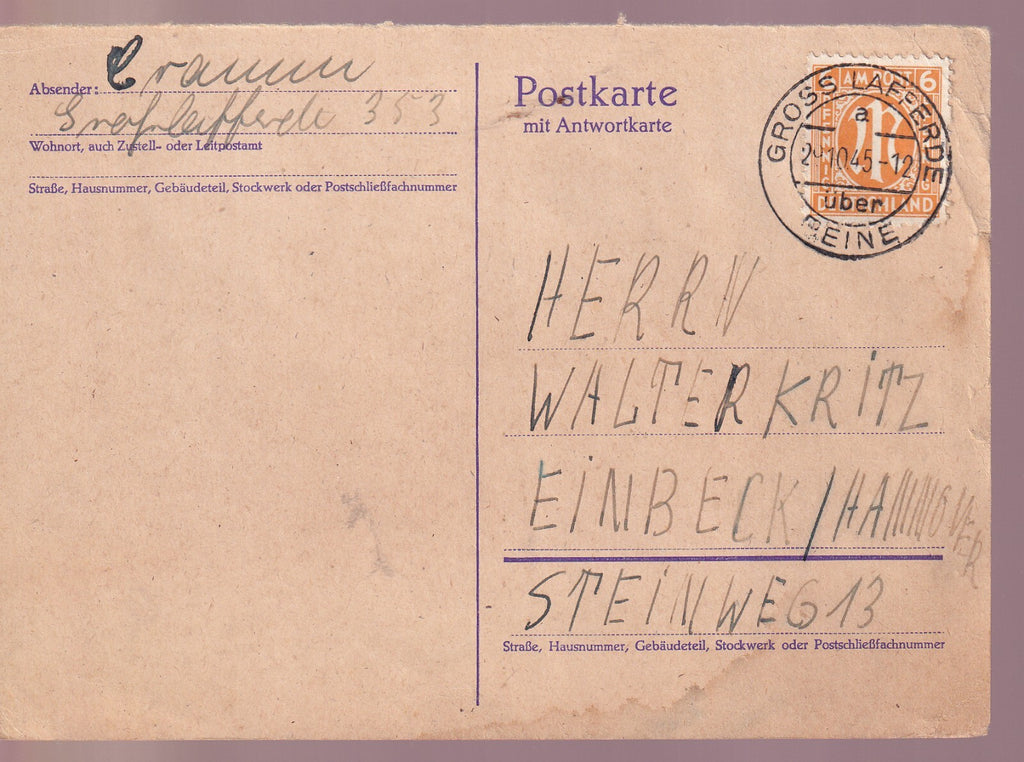 Absender: Cramm
Großlafferde 353
Wohnort, auch Zustell- oder Leitpostamt
Straße, Hausnummer, Gebäudeteil, Stockwerk oder Postschließfachnummer
Postkarte
mit Antwortkarte
AM POST 6
DEUTSCHLAND
GROSS LAFFERDE
a
10 45-12
über
PEINE
HERRN
WALTER KRITZ
EINBECK/HANNNOVER
STEINWEG 13
Straße, Hausnummer, Gebäudeteil, Stockwerk oder Postschließfachnummer